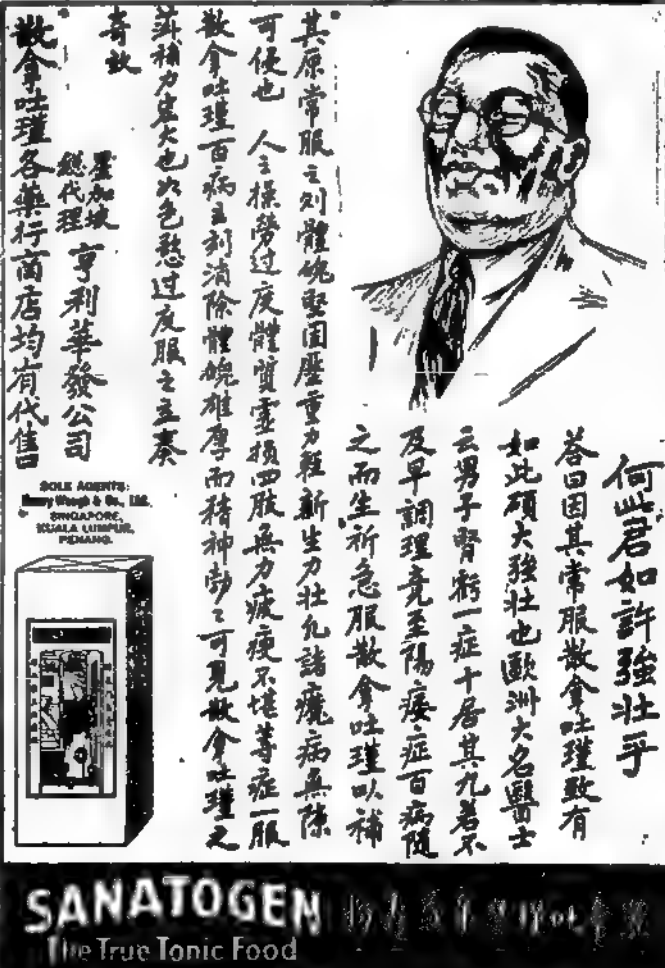 何此君如許強壯乎
答曰因其常服散拿吐瑾致有
如此碩大強壯也歐洲大名醫士
云男子腎虧一症十居其九若不
及早調理竟至陽痿症百病隨
之而生祈急服散拿吐瑾以補
其原常服之則體魄堅固壓重力輕新生力壯凡諸癆病無隙
可侵也 人之操勞过度體質虛損四肢無力疲痩不堪等症一服
散拿吐瑾百病立刻消除體魄雄厚而精神勃々可見散拿吐瑾之
滋補力宏大也如色慾过度服之立奏
奇效
星加坡
總代理
亨利華發公司
散拿吐瑾各藥行商店均有代售
SOLE AGENTS:
Henry Waugh & Co., Ltd.
SINGAPORE,
KUALA LUMPUR,
PENANG.
SANATOGEN
The True Tonic Food